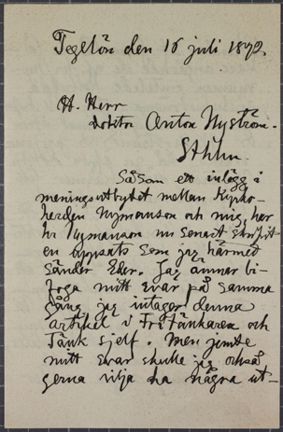 Tegelön den 16 juli 1892.
H. Herr
doktor Anton Nyström.
Sthlm.
Såsom ett inlägg i
meningsutbytet mellan Kyrko-
herden Nymanson och mig har
hr Nymanson nu senast skrifvit
en uppsats som jag härmed
sänder Eder. Jag ämnar bi-
foga mitt svar på samma
gång jag intager denna
artikel i Fritänkaren och
Tänk sjelf. Men jemte
mitt svar skulle jag också
gerna vilja ha några ut-